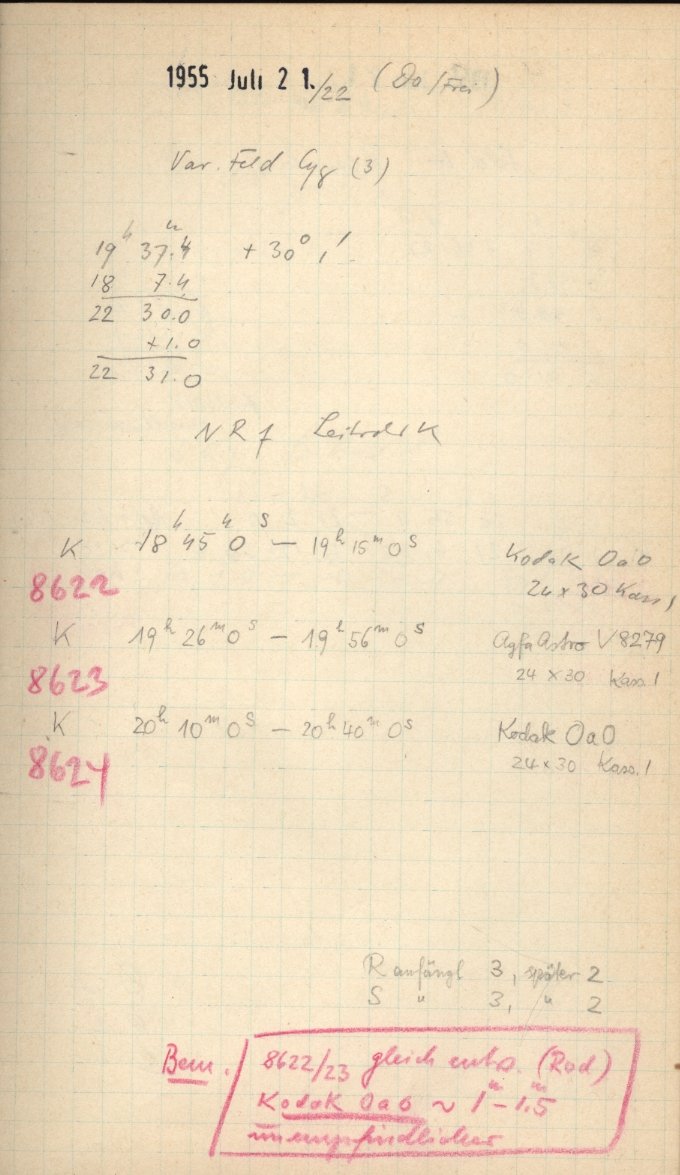 1955 Juli 21./22 (Do/Frei)
Var. Feld Cyg (3)
19ʰ 37.4ᵐ + 30° 1'
18 7.4
22 30.0
+1.0
22 31.0
NR f
K 18ʰ 45ᵐ 0ˢ — 19ʰ 15ᵐ 0ˢ Kodak OaO
8622 24 x 30 Kass 1
K 19ʰ 26ᵐ 0ˢ — 19ʰ 56ᵐ 0ˢ Agfa Astro V8279
8623 24 x 30 Kass. 1
K 20ʰ 10ᵐ 0ˢ — 20ʰ 40ᵐ 0ˢ Kodak OaO
8624 24 x 30 Kass. 1
R anfängl 3, später 2
S " 3, " 2
Bem. 8622/23 gleich entw. (Rod)
Kodak OaO ~ 1ᵐ - 1.5ᵐ
unempfindlicher